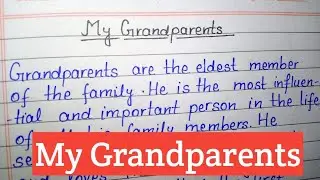 My Grandparents
Grandparents are the eldest member
of the family. He is the most influen-
-tial and important person in the life
of family members. He
My Grandparents